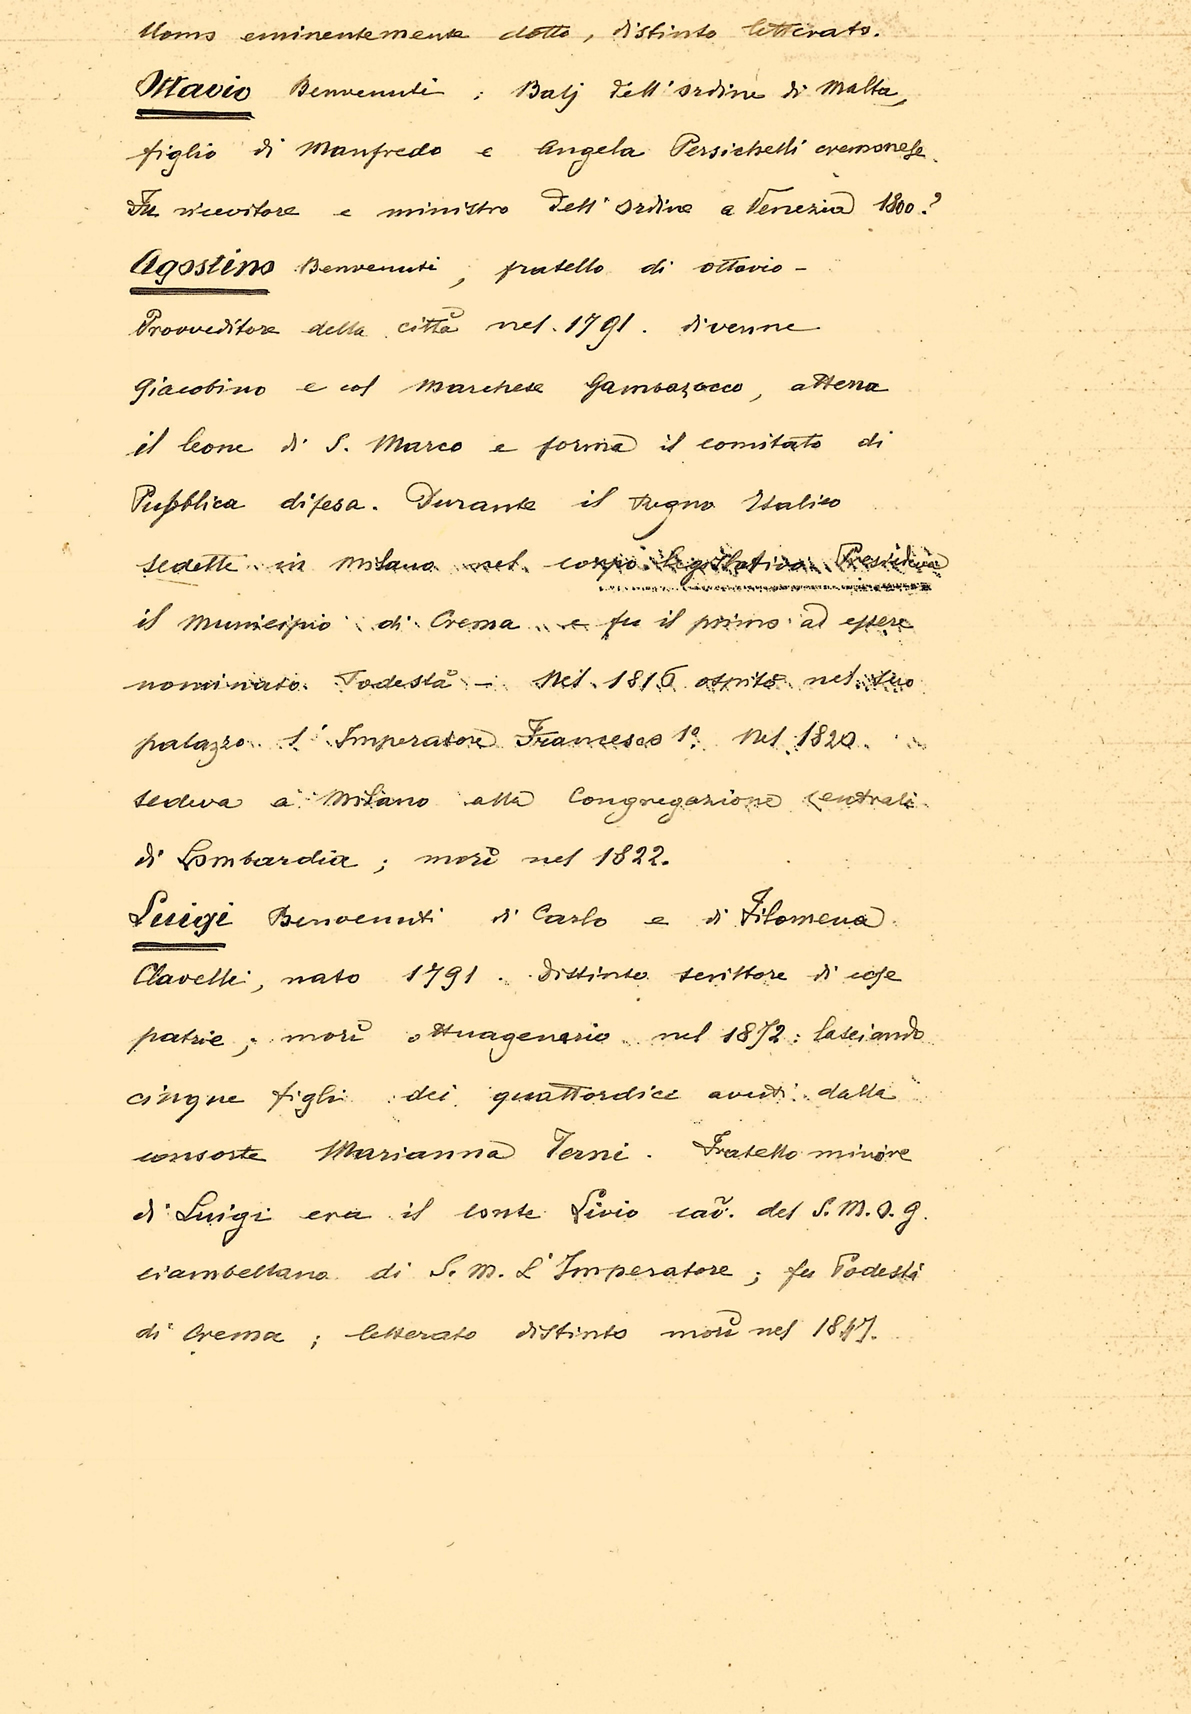 Uomo eminentemente dotto, distinto letterato.
Ottavio Benvenuti ; Balj dell'ordine di Malta,
figlio di Manfredo e Angela Persichelli cremonese.
Fu ricevitore e ministro dell'ordine a Venezia 1800.?
Agostino Benvenuti, fratello di ottavio -
Provveditore della città nel 1791. divenne
Giacobino e col Marchese Gambazocco, atterra
il leone di S. Marco e forma il comitato di
Pubblica difesa. Durante il Regno Italico
sedette in Milano nel corpo legislativo. Presidiava
il Municipio di Crema e fu il primo ad essere
nominato Podestà - Nel 1816 ospitò nel suo
palazzo l'Imperatore Francesco 1º. Nel 1820
sedeva a Milano alla Congregazione centrale
di Lombardia ; morì nel 1822.
Luigi Benvenuti di Carlo e di Filomena
Clavelli, nato 1791. Distinto scrittore di cose
patrie ; morì ottuagenario nel 1872 : lasciando
cinque figli dei quattordice avuti dalla
consorte Marianna Terni. Fratello minore
di Luigi era il conte Livio cav. del S. M. O. G.
ciambellano di S. M. L'Imperatore ; fu Podestà
di Crema ; letterato distinto morì nel